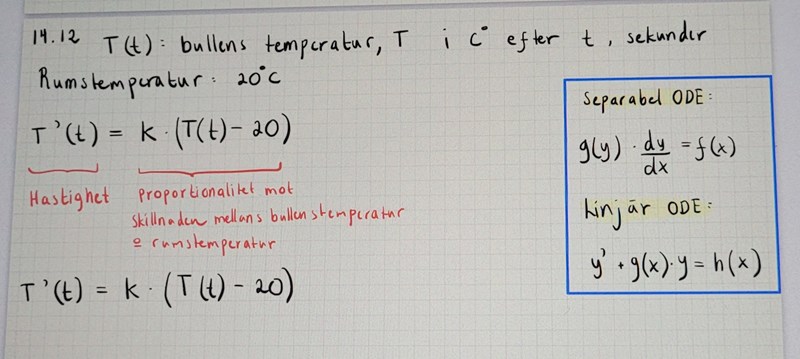 14.12 T(t): bullens temperatur, T i C° efter t, sekunder
Rumstemperatur: 20°C
T'(t) = k · (T(t) - 20)
Hastighet
proportionalitet mot
skillnaden mellans bullenstemperatur
o rumstemperatur
T'(t) = k · (T(t) - 20)
Separabel ODE:
g(y) · dy/dx = f(x)
Linjär ODE:
y' + g(x)·y = h(x)